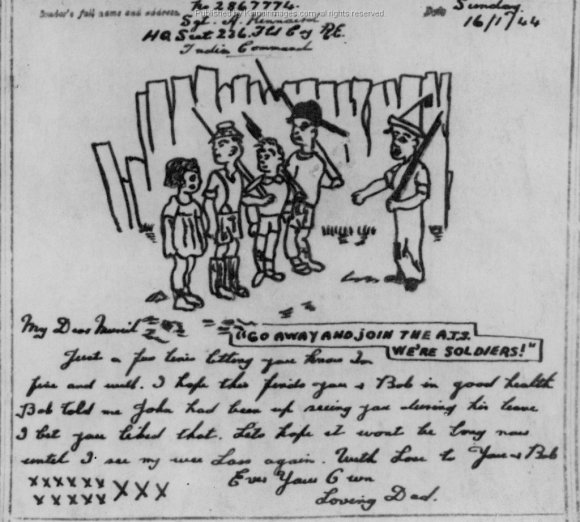 No 2867774.
Sender's full name and address
Published by Kenanimages.com, all rights reserved.
Date Sunday
16/1/44
HQ Sect 226. Fld Coy RE.
India Command
"GO AWAY AND JOIN THE A.T.S.
WE'RE SOLDIERS!"
My Dear Muriel
Just a few lines letting you know Im
fine and well. I hope this finds you & Bob in good health
Bob told me John had been up seeing you during his leave
I bet you liked that. Lets hope it wont be long now
until I see my wee Lass again. With Love to You & Bob
Ever Yours Own
Loving Dad.
xxxxxx XXX
xxxxxx